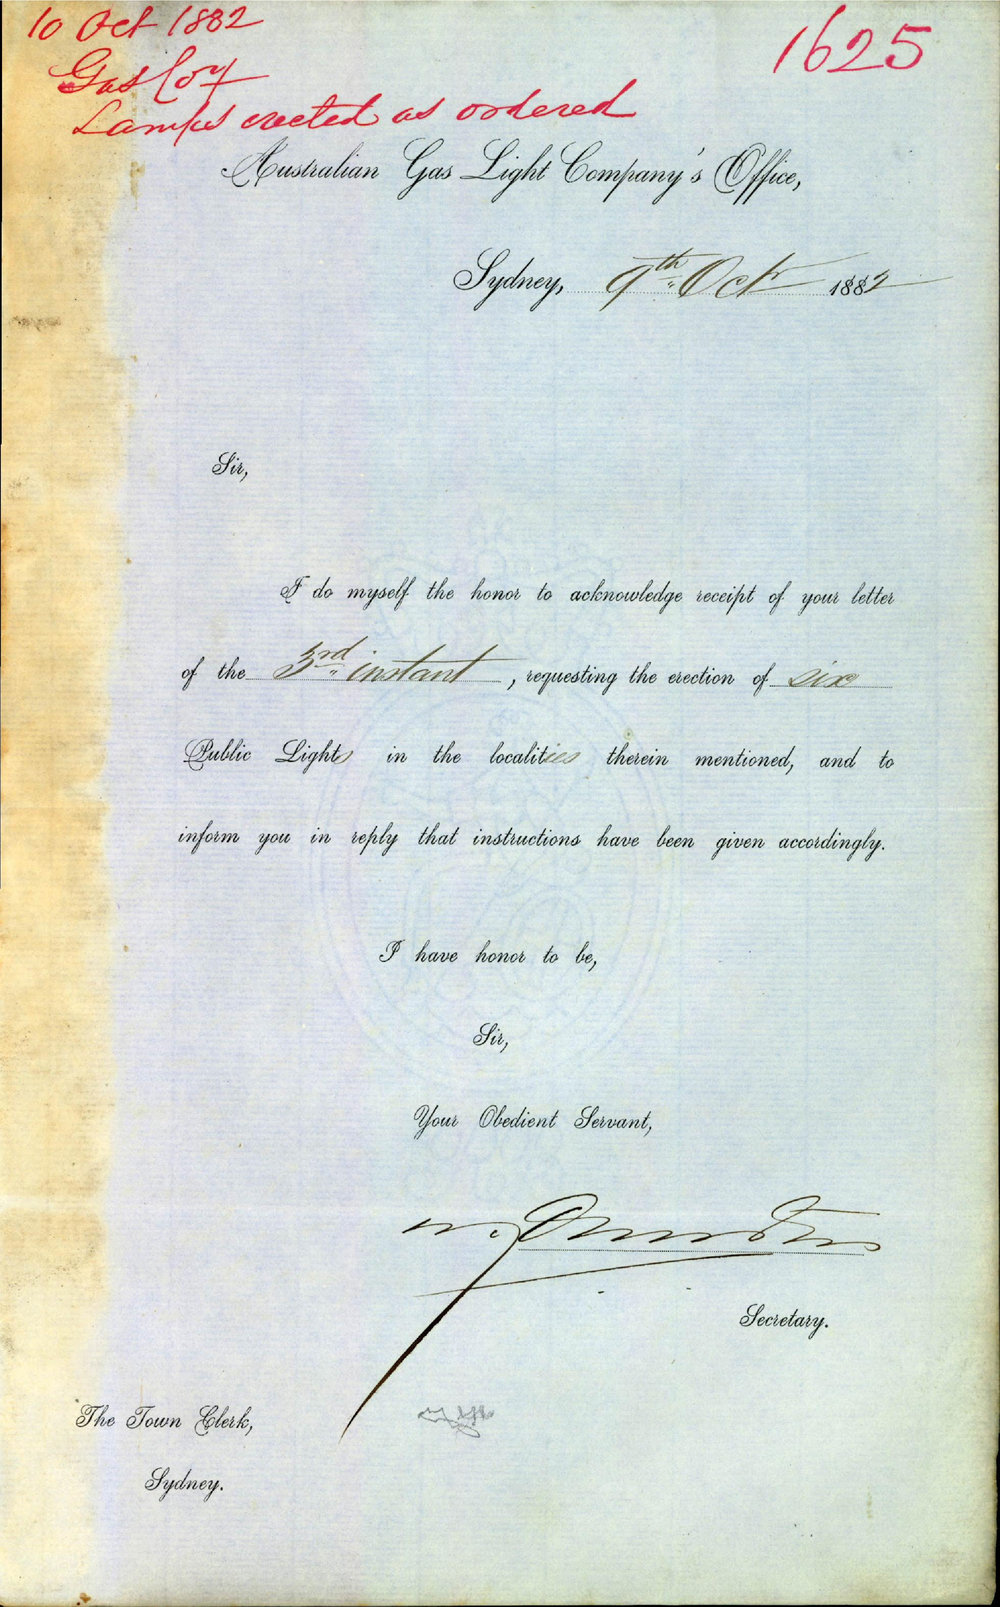 10 Oct 1882
1625
Gas Coy
Lamps erected as ordered
Australian Gas Light Company's Office,
Sydney, 9th Oct 1882
Sir,
I do myself the honor to acknowledge receipt of your letter
of the 3rd instant, requesting the erection of six
Public Lights in the localities therein mentioned, and to
inform you in reply that instructions have been given accordingly.
I have honor to be,
Sir,
Your Obedient Servant,
Secretary.
The Town Clerk,
Sydney.